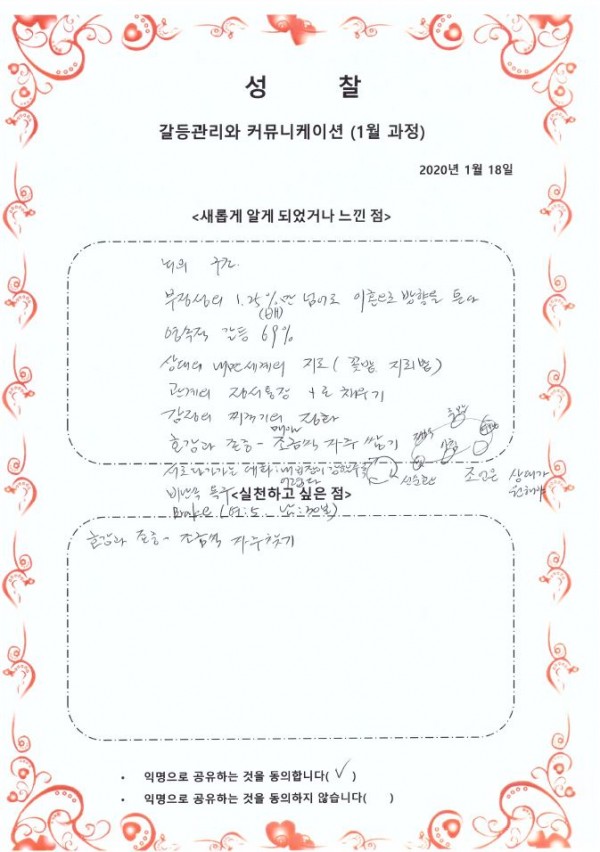 성 찰
갈등관리와 커뮤니케이션 (1월 과정)
2020년 1월 18일
<새롭게 알게 되었거나 느낀 점>
뇌의 구조
부정성의 1.25%만 넘어도 이혼으로 방향을 튼다
(배)
영속적 갈등 69%
상대의 내면세계의 지도 ( 꽃밭, 지뢰밭 )
관계의 정서통장 +로 채우기
감정의 찌꺼기의 정화
호감과 존중 - 조금씩 자주 쌓기
매일
서로 다가가는 대화:
조언은 상대가
원해야
비난 독
<실천하고 싶은 점>
호감과 존중 - 조금씩 자주 찾기
• 익명으로 공유하는 것을 동의합니다( ✓ )
• 익명으로 공유하는 것을 동의하지 않습니다( )